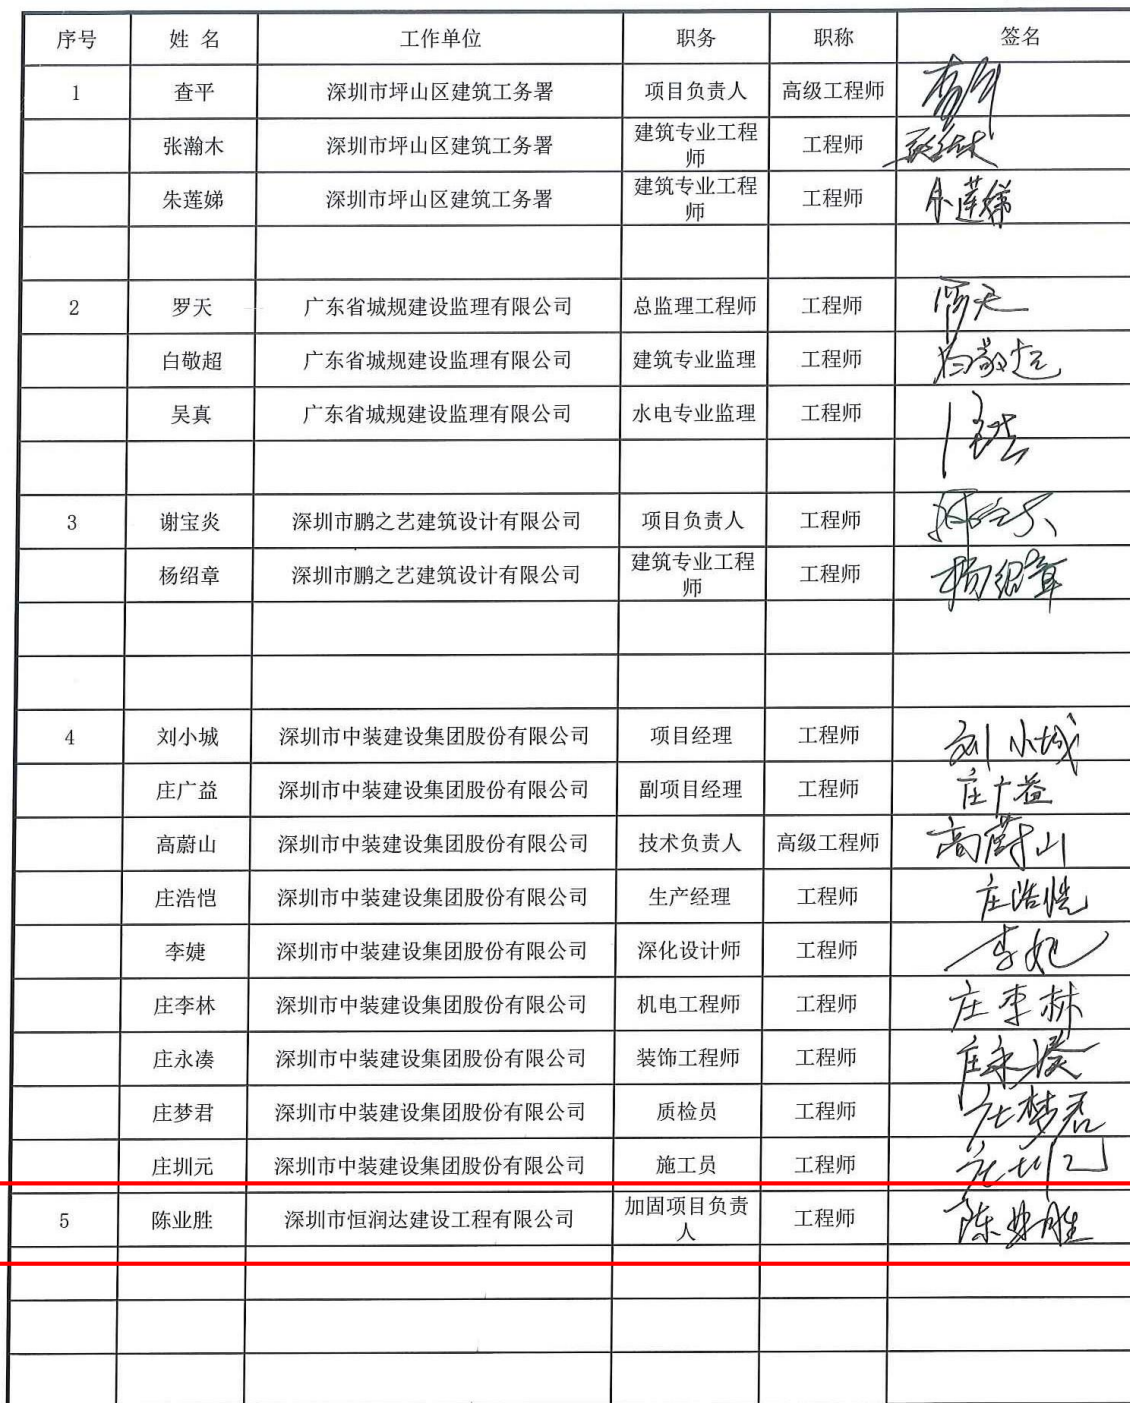 序号 姓 名 工作单位 职务 职称 签名
1 查平 深圳市坪山区建筑工务署 项目负责人 高级工程师
张瀚木 深圳市坪山区建筑工务署 建筑专业工程师 工程师
朱莲娣 深圳市坪山区建筑工务署 建筑专业工程师 工程师 朱莲娣
2 罗天 广东省城规建设监理有限公司 总监理工程师 工程师 罗天
白敬超 广东省城规建设监理有限公司 建筑专业监理 工程师 白敬超
吴真 广东省城规建设监理有限公司 水电专业监理 工程师
3 谢宝炎 深圳市鹏之艺建筑设计有限公司 项目负责人 工程师
杨绍章 深圳市鹏之艺建筑设计有限公司 建筑专业工程师 工程师 杨绍章
4 刘小城 深圳市中装建设集团股份有限公司 项目经理 工程师 刘小城
庄广益 深圳市中装建设集团股份有限公司 副项目经理 工程师 庄广益
高蔚山 深圳市中装建设集团股份有限公司 技术负责人 高级工程师 高蔚山
庄浩恺 深圳市中装建设集团股份有限公司 生产经理 工程师 庄浩恺
李婕 深圳市中装建设集团股份有限公司 深化设计师 工程师 李婕
庄李林 深圳市中装建设集团股份有限公司 机电工程师 工程师 庄李林
庄永凑 深圳市中装建设集团股份有限公司 装饰工程师 工程师 庄永凑
庄梦君 深圳市中装建设集团股份有限公司 质检员 工程师 庄梦君
庄圳元 深圳市中装建设集团股份有限公司 施工员 工程师 庄圳元
5 陈业胜 深圳市恒润达建设工程有限公司 加固项目负责人 工程师 陈业胜